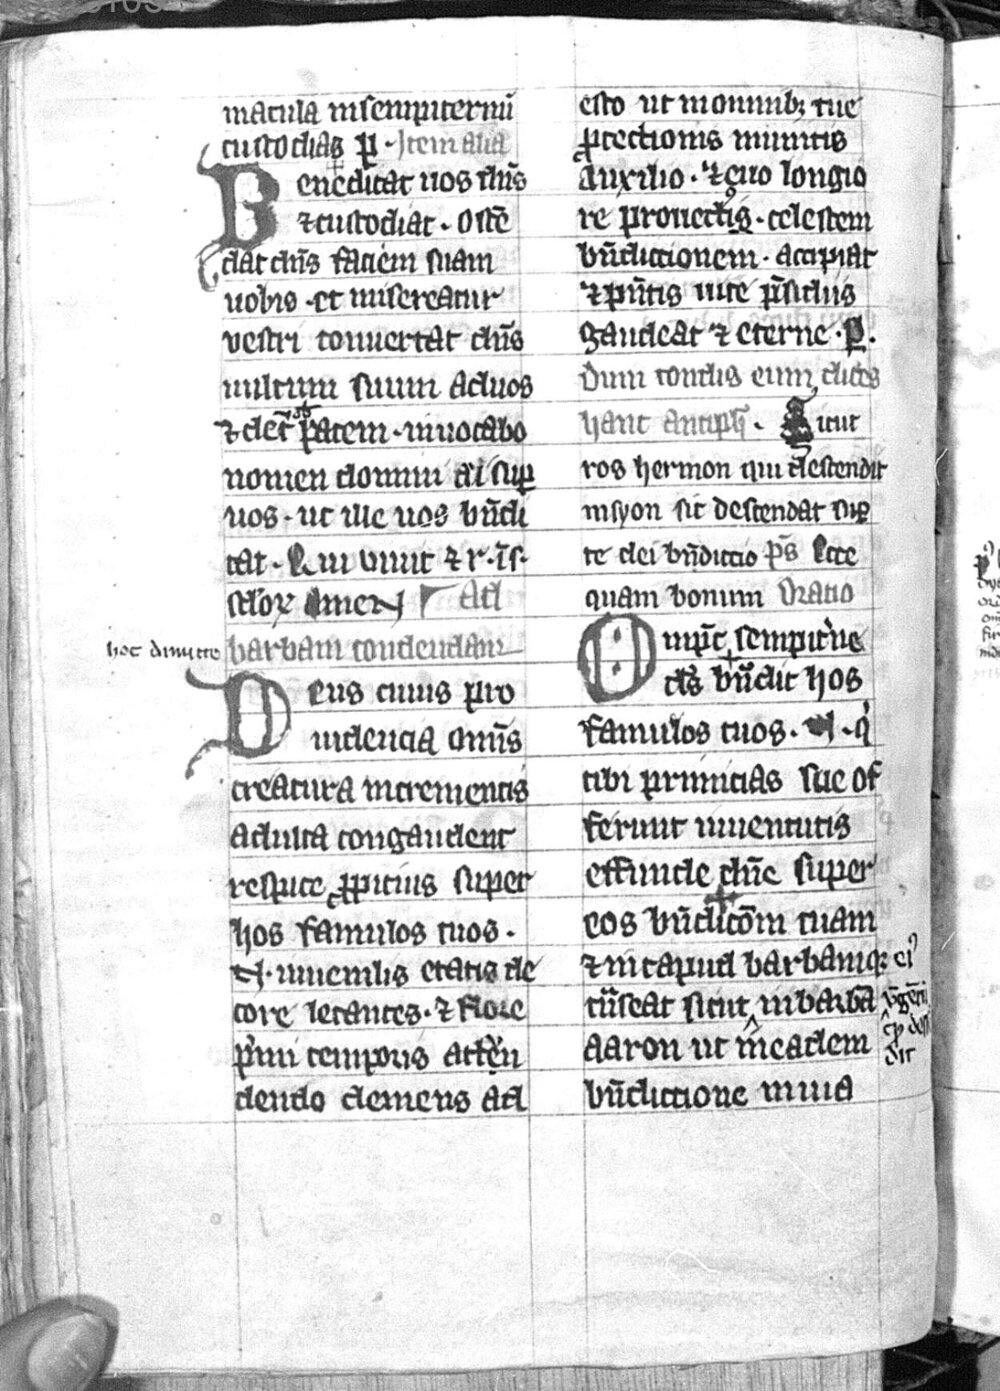 macula insempiternū
custodias p̲ · Item alia
Benedicat uos dn̄s
⁊custodiat · Ostē
dat dn̄s faciem suam
uobis · et misereatur
vestri conuertat dn̄s
uultum suum aduos
⁊det̄ patem · inuocabo
nomen domini d̄i sup̲
uos · ut ille uos bn̄di
cat · Qui uiuit ⁊ r · īs ·
scloꝝ Amen Ad
barbam tondendam
hoc dimitto
Deus cuius pro
uidencia om̄is
creatura incrementis
adulta congaudent
respice ꝓpicius super
hos famulos tuos ·
N · iuuenilis etatis de
core letantes · ⁊ flore
p'mi temporis attēn
dendo clemens ad
esto ut monimibꝫ tue
ꝓtectionis munitis
Auxilio · ⁊euo longio
re prouectis · celestem
bn̄dictionem · accipiat
⁊pn̄tis uite p̄sidiis
gaudeat ⁊ eterne · p̲ ·
Dum tondis eum dices
hanc antiph̄ · Sicut
ros hermon qui descendit
insyon sic descendat sup̲
te dei bn̄dictio ps̄ Ecce
quam bonum Oratio
Omp̄c sempit'ne
ds̄ bn̄dic hos
famulos tuos · N · q'
tibi primicias sue of
ferunt iuuentutis
effunde dn̄e super
eos bn̄dicōm tuam
⁊incapud barbamqꝫ ei'
tn̄seat sicut inbarbā
Aaron ut ineadem
bn̄dictione muia